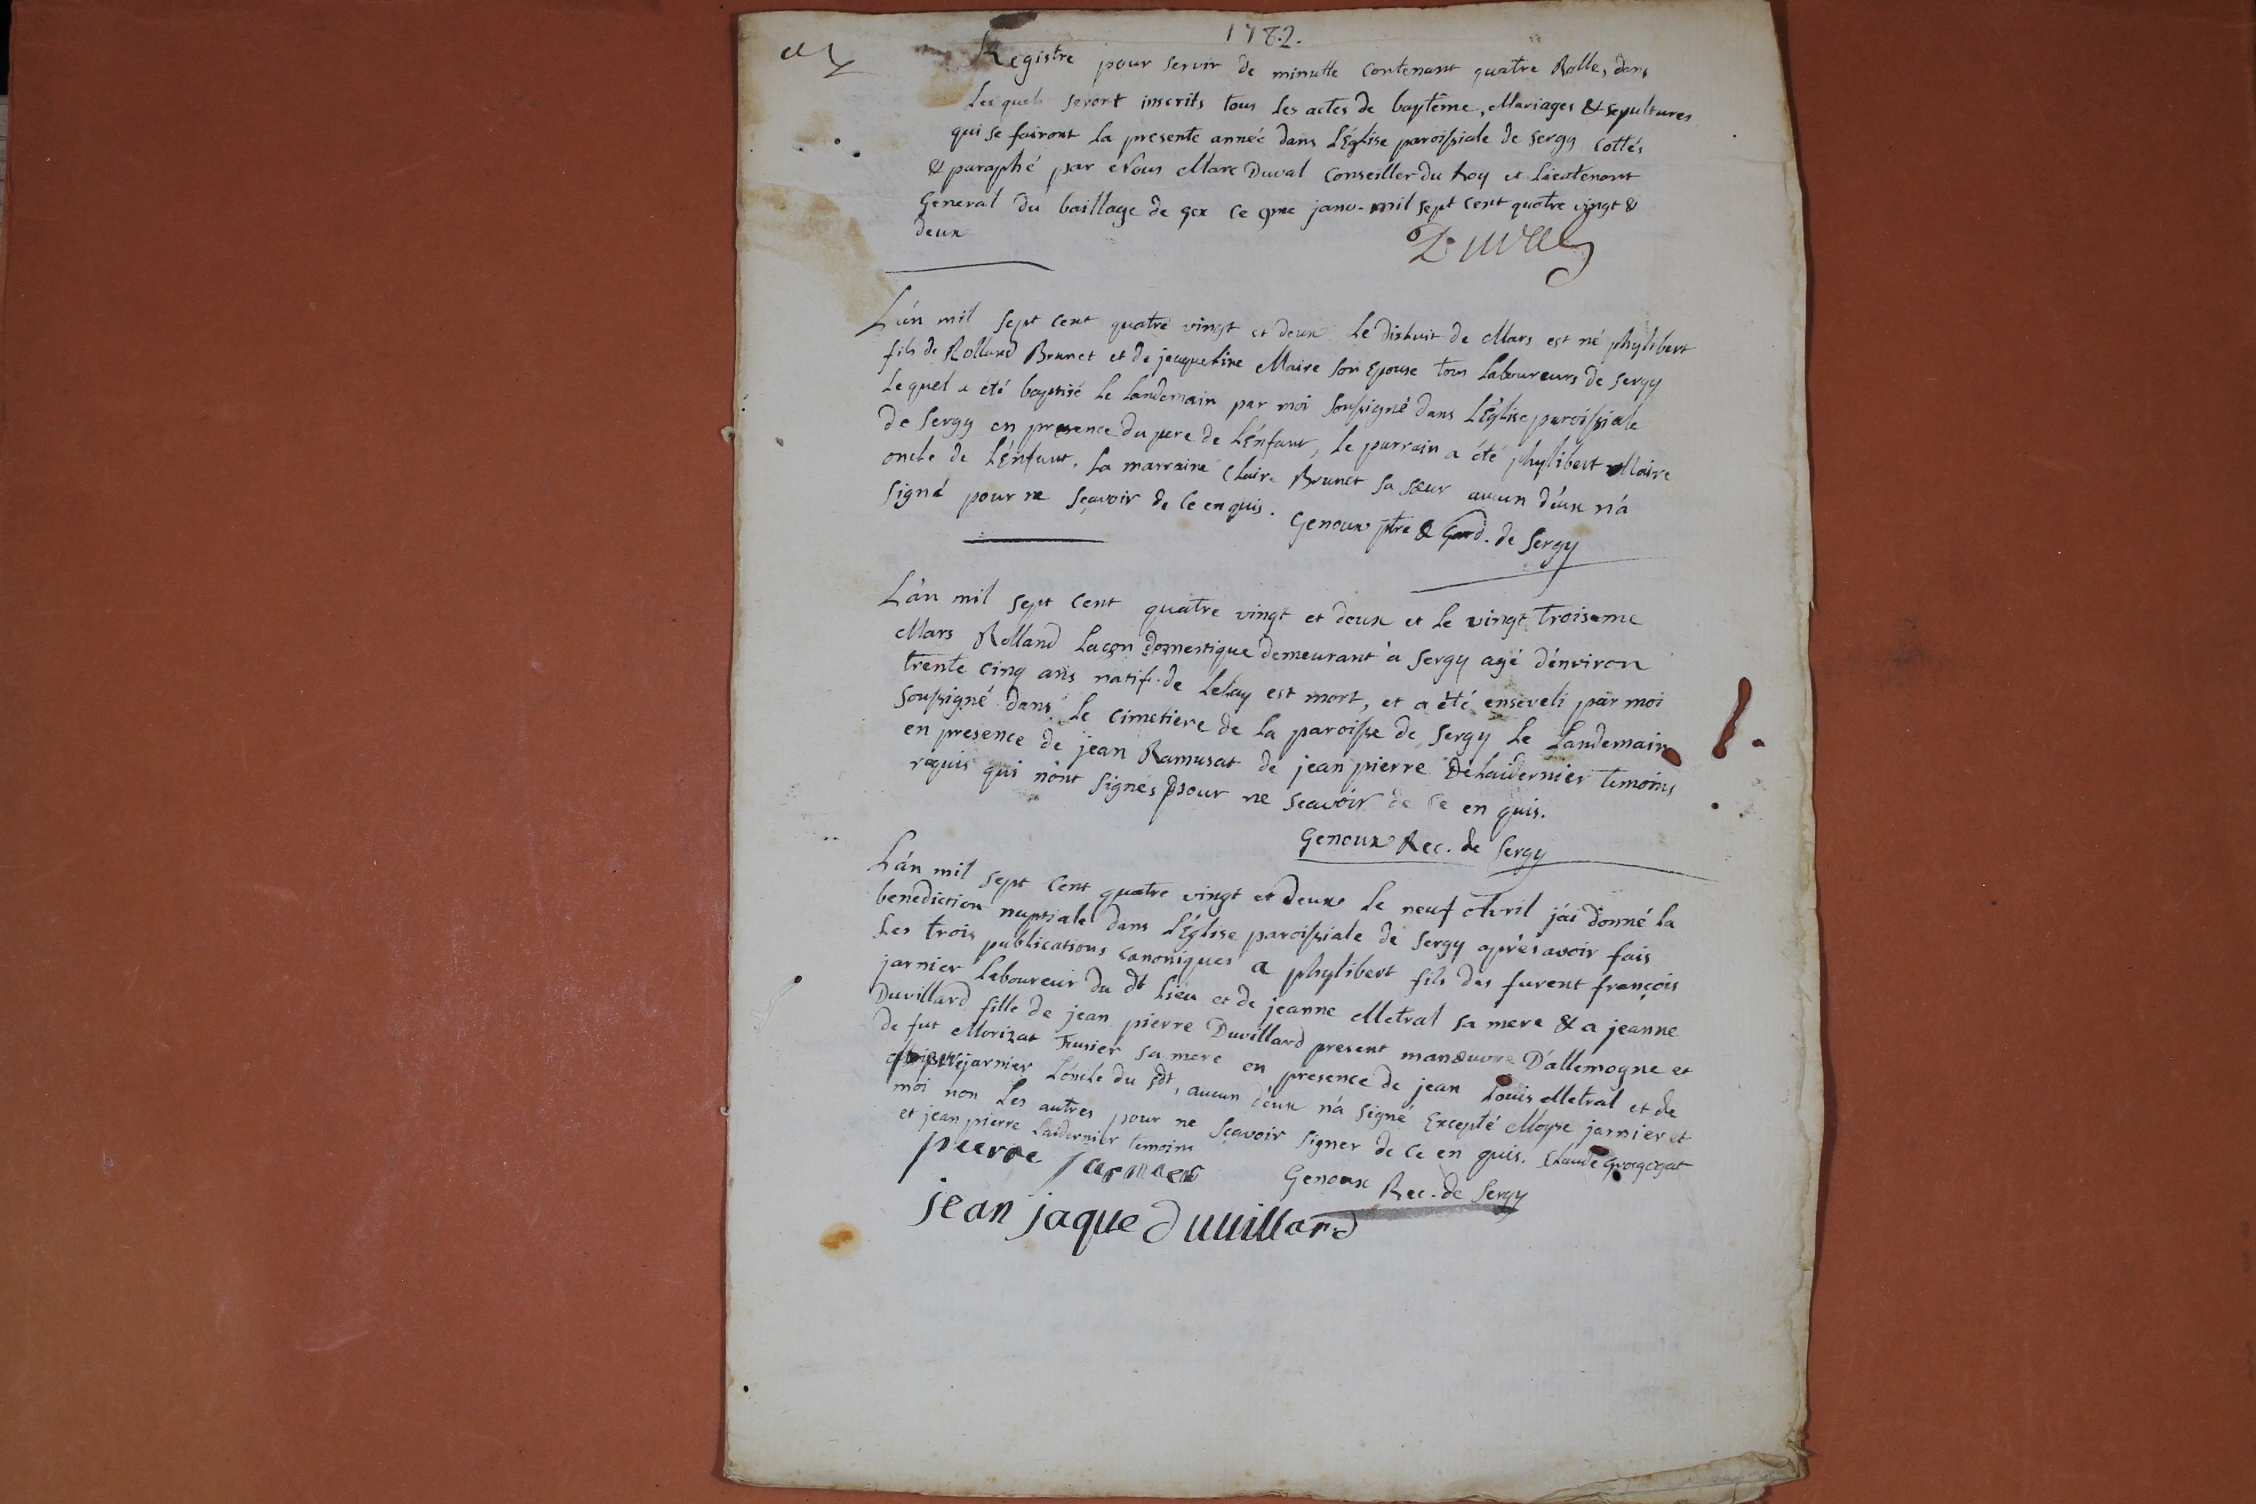 1782.
Registre pour servir de minutte contenant quatre Rolle, dans
Lesquels seront inscrits tous les actes de baptême, Mariages & sepultures
qui se fairont la presente année dans L'Église paroissiale de Sergy cottés
& paraphé par Nous Marc Duval Conseiller du Roy et Lieutenant
General du baillage de gex ce janv. mil sept cent quatre vingt &
deux
Duval
L'án mil sept cent quatre vingt et deux le dixhuit de Mars est né phylibert
fils de Rolland Brunet et de jacqueline Maire son Epouse tous Laboureurs de Sergy
Lequel a été baptisé le Landemain par moi soussigné dans L'Église paroissiale
de Sergy en presence du pere de L'énfant, le parrain a été phylibert Maire
oncle de L'énfant. La marraine Claire Brunet sa sœur aucun d'éux n'á
signé pour ne sçavoir de ce enquis. Genoux ptre & de Sergy
L'án mil sept cent quatre vingt et deux et le vingt troisieme
Mars Rolland Laçon domestique demeurant à Sergy agé d'énviron
trente cinq ans natif de Lelay est mort, et a été enseveli par moi
soussigné dans le cimetiere de la paroisse de Sergy le Landemain
en presence de jean Ramusat de jean pierre Delaidernier temoins
requis qui n'ont signés pour ne sçavoir de ce en quis.
Genoux Rec. de Sergy
L'án mil sept cent quatre vingt et deux le neuf Avril j'ái donné la
benediction nuptiale dans L'Église paroissiale de Sergy aprés avoir fais
les trois publications canoniques a phylibert fils des furent françois
jarnier laboureur du dt Lieu et de jeanne Metral sa mere & a jeanne
Duvillard fille de jean pierre Duvillard present manœuvre D'allemogne et
de fut Morizat sa mere en presence de jean Louis Metral et de
jarnier L'óncle du sdt, aucun d'éux n'á signé Excepté Moyse jarnier et
moi non Les autres pour ne sçavoir signer de ce en quis. Claude
et jean pierre Laidernier temoins
pierre jarnier
Genoux Rec. de Sergy
jean jaque duuillard